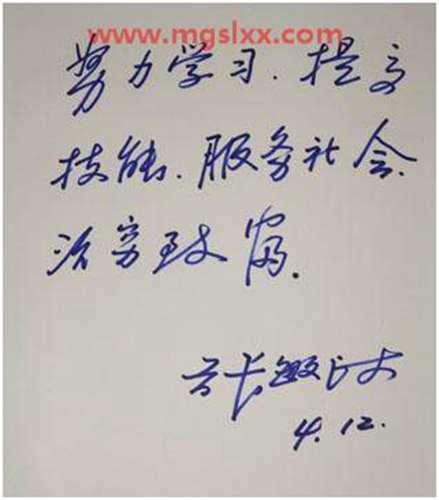 www.mgslxx.com
努力学习.提高
技能.服务社会.
治穷致富.
4.12.